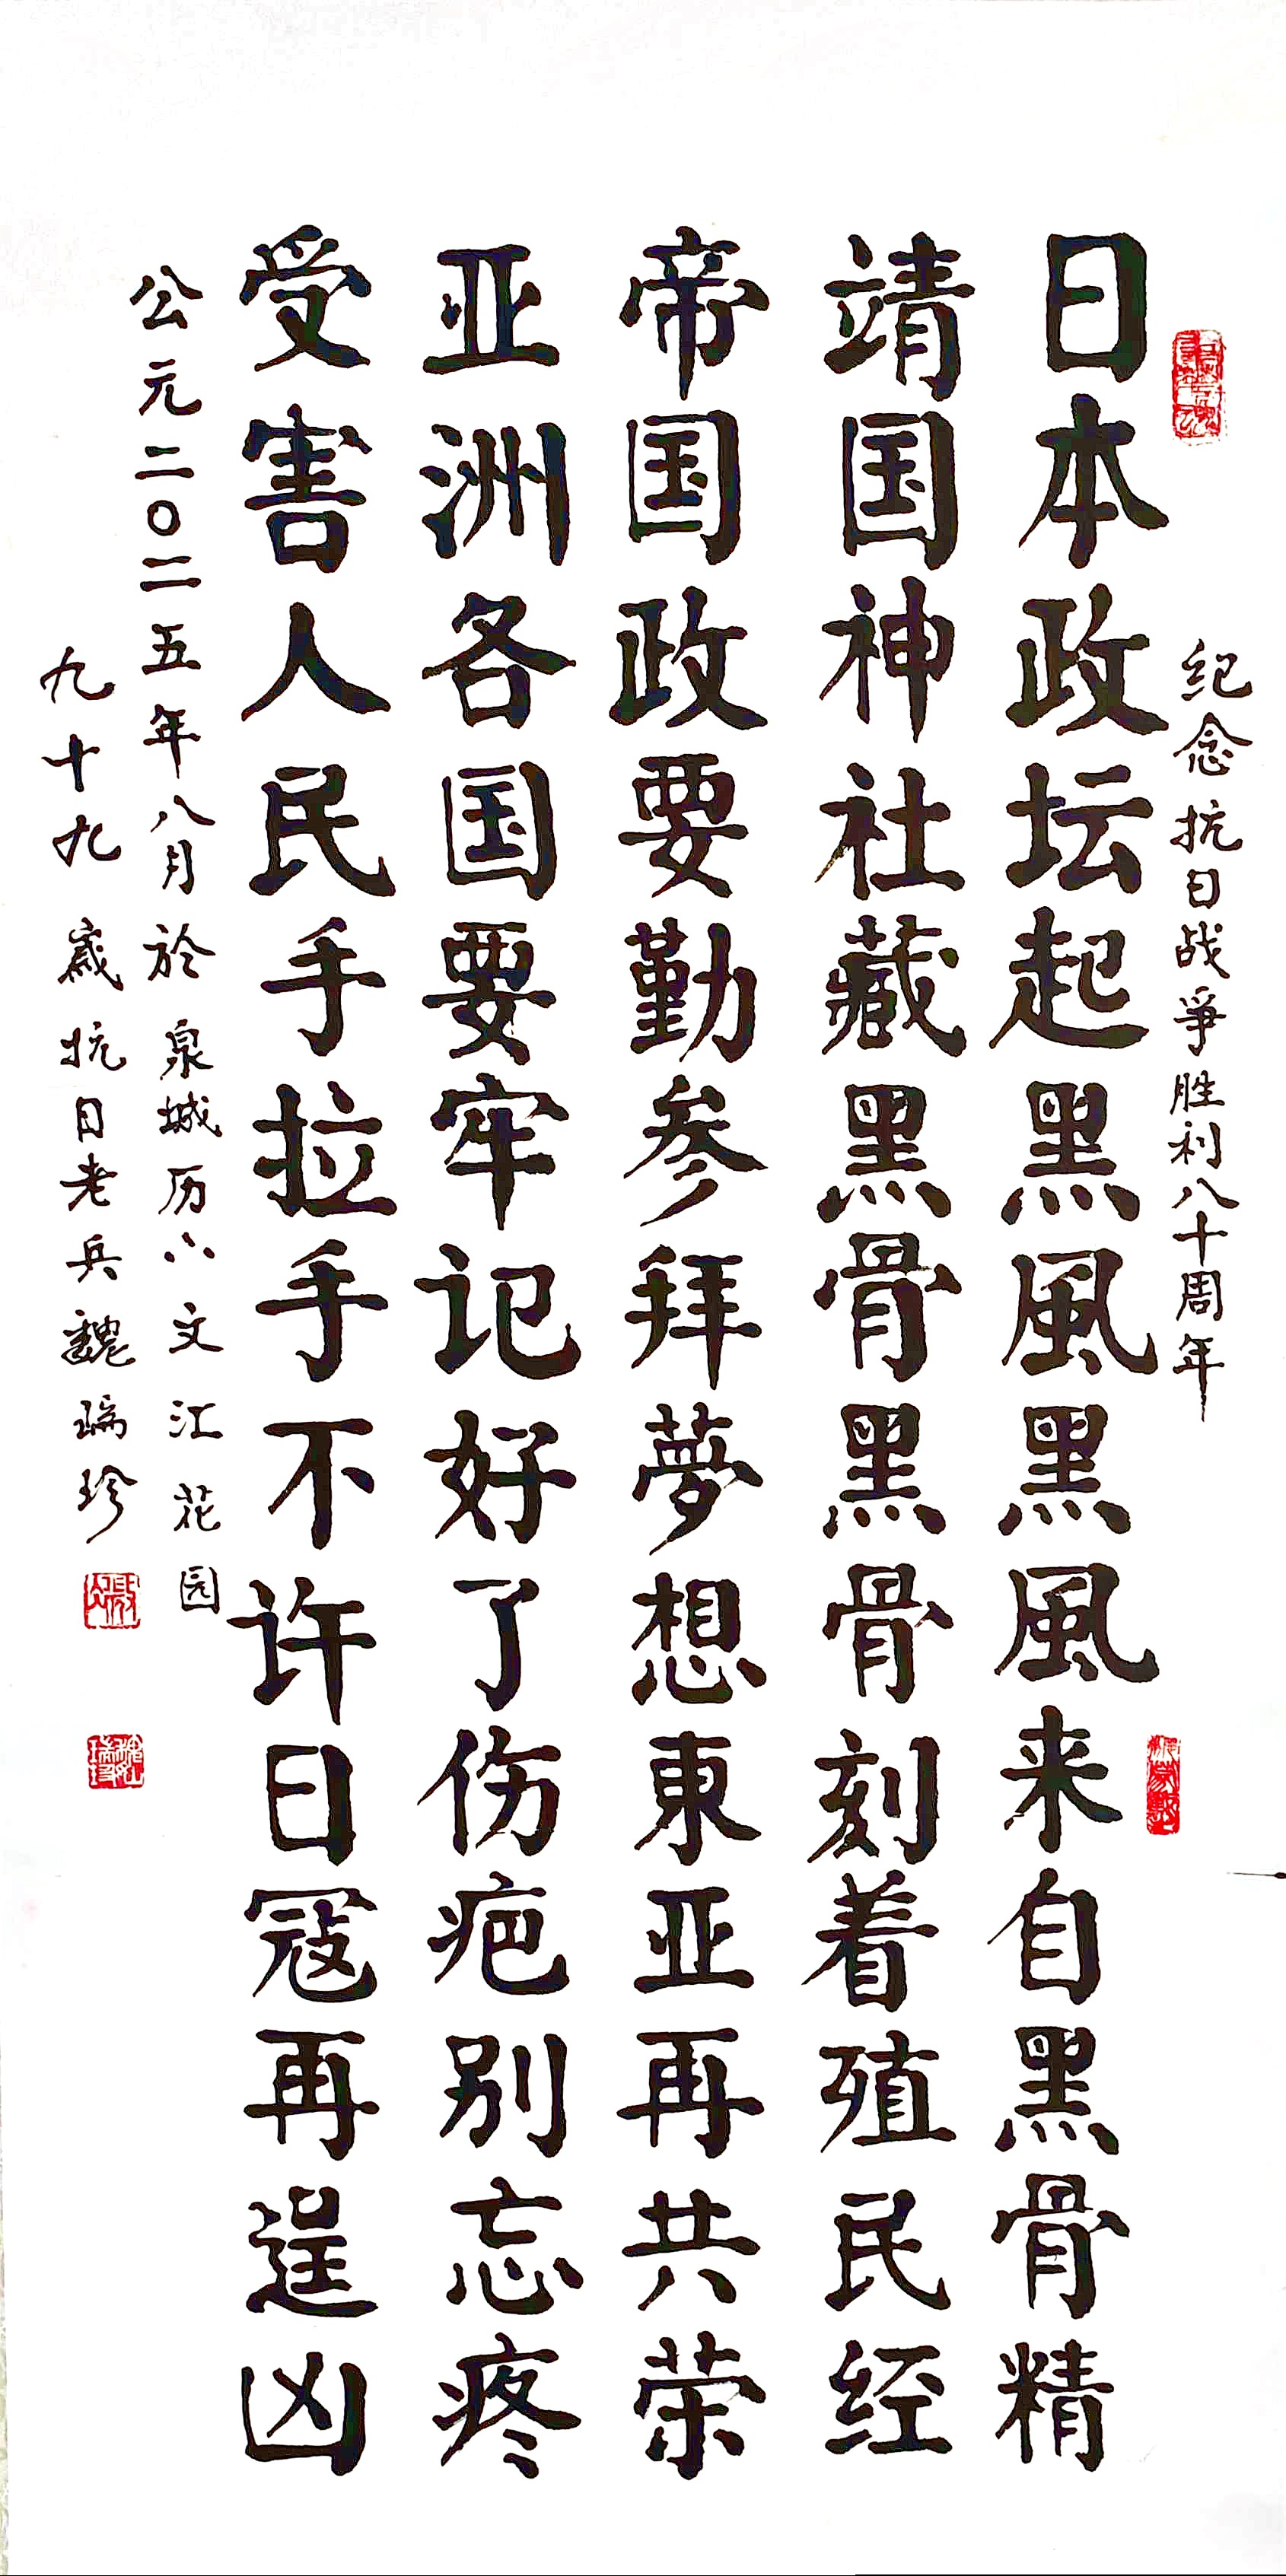 纪念抗日战爭胜利八十周年
日本政坛起黑風黑風来自黑骨精
靖国神社藏黑骨黑骨刻着殖民经
帝国政要勤参拜夢想東亚再共荣
亚洲各国要牢记好了伤疤别忘疼
受害人民手拉手不许日寇再逞凶
公元二〇二五年八月於泉城历下文江花园
九十九歲抗日老兵魏瑞珍